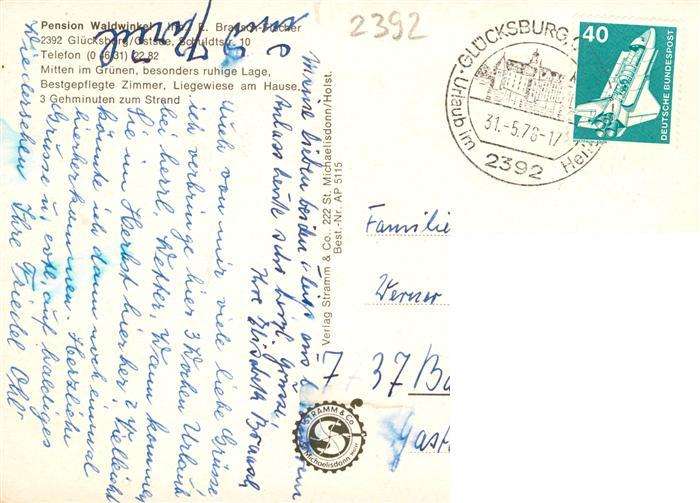 Pension Waldwinkel
2392 Glücksburg/Ostsee, Schuldtstr. 10
Telefon (0 46 31) 22 82
Mitten im Grünen, besonders ruhige Lage,
Bestgepflegte Zimmer, Liegewiese am Hause.
3 Gehminuten zum Strand
2392
GLÜCKSBURG
Urlaub im
31.-5.76-17
2392
40
DEUTSCHE BUNDESPOST
Meine lieben beiden
Anlass heute sehr herzl. Grüsse,
Ihre Elisabeth
Auch von mir viele liebe Grüsse
ich verbringe hier 3 Wochen Urlaub
bei herrl. Wetter. Wann kommen
Sie im Herbst hierher? Vielleicht
könnte ich dann noch einmal
hierherkommen. Herzliche
Grüsse u. evtl. auf baldiges
Wiedersehen Ihre Friedel
Verlag Stramm & Co., 222 St. Michaelisdonn/Holst.
Best.-Nr. AP 5115
STRAMM & CO
St. Michaelisdonn
Familie
Werner
37